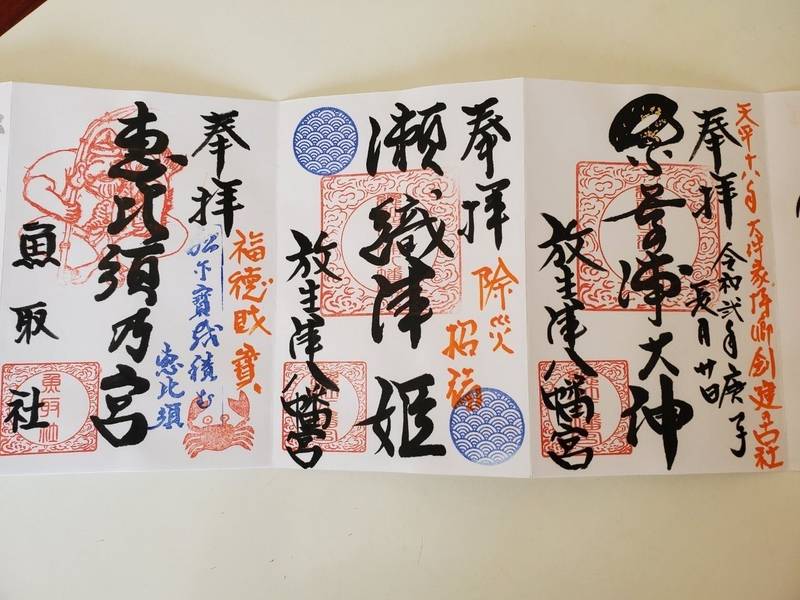 天平十八年 大伴家持卿創建古社
令和弐年庚子
月廿日
奉拝
奈呉浦大神
放生津八幡宮
奉拝
除災
招福
瀬織津姫
放生津八幡宮
奉拝
福徳財寶
下寶銭積む
恵比須
恵比須乃宮
魚取社
魚取社